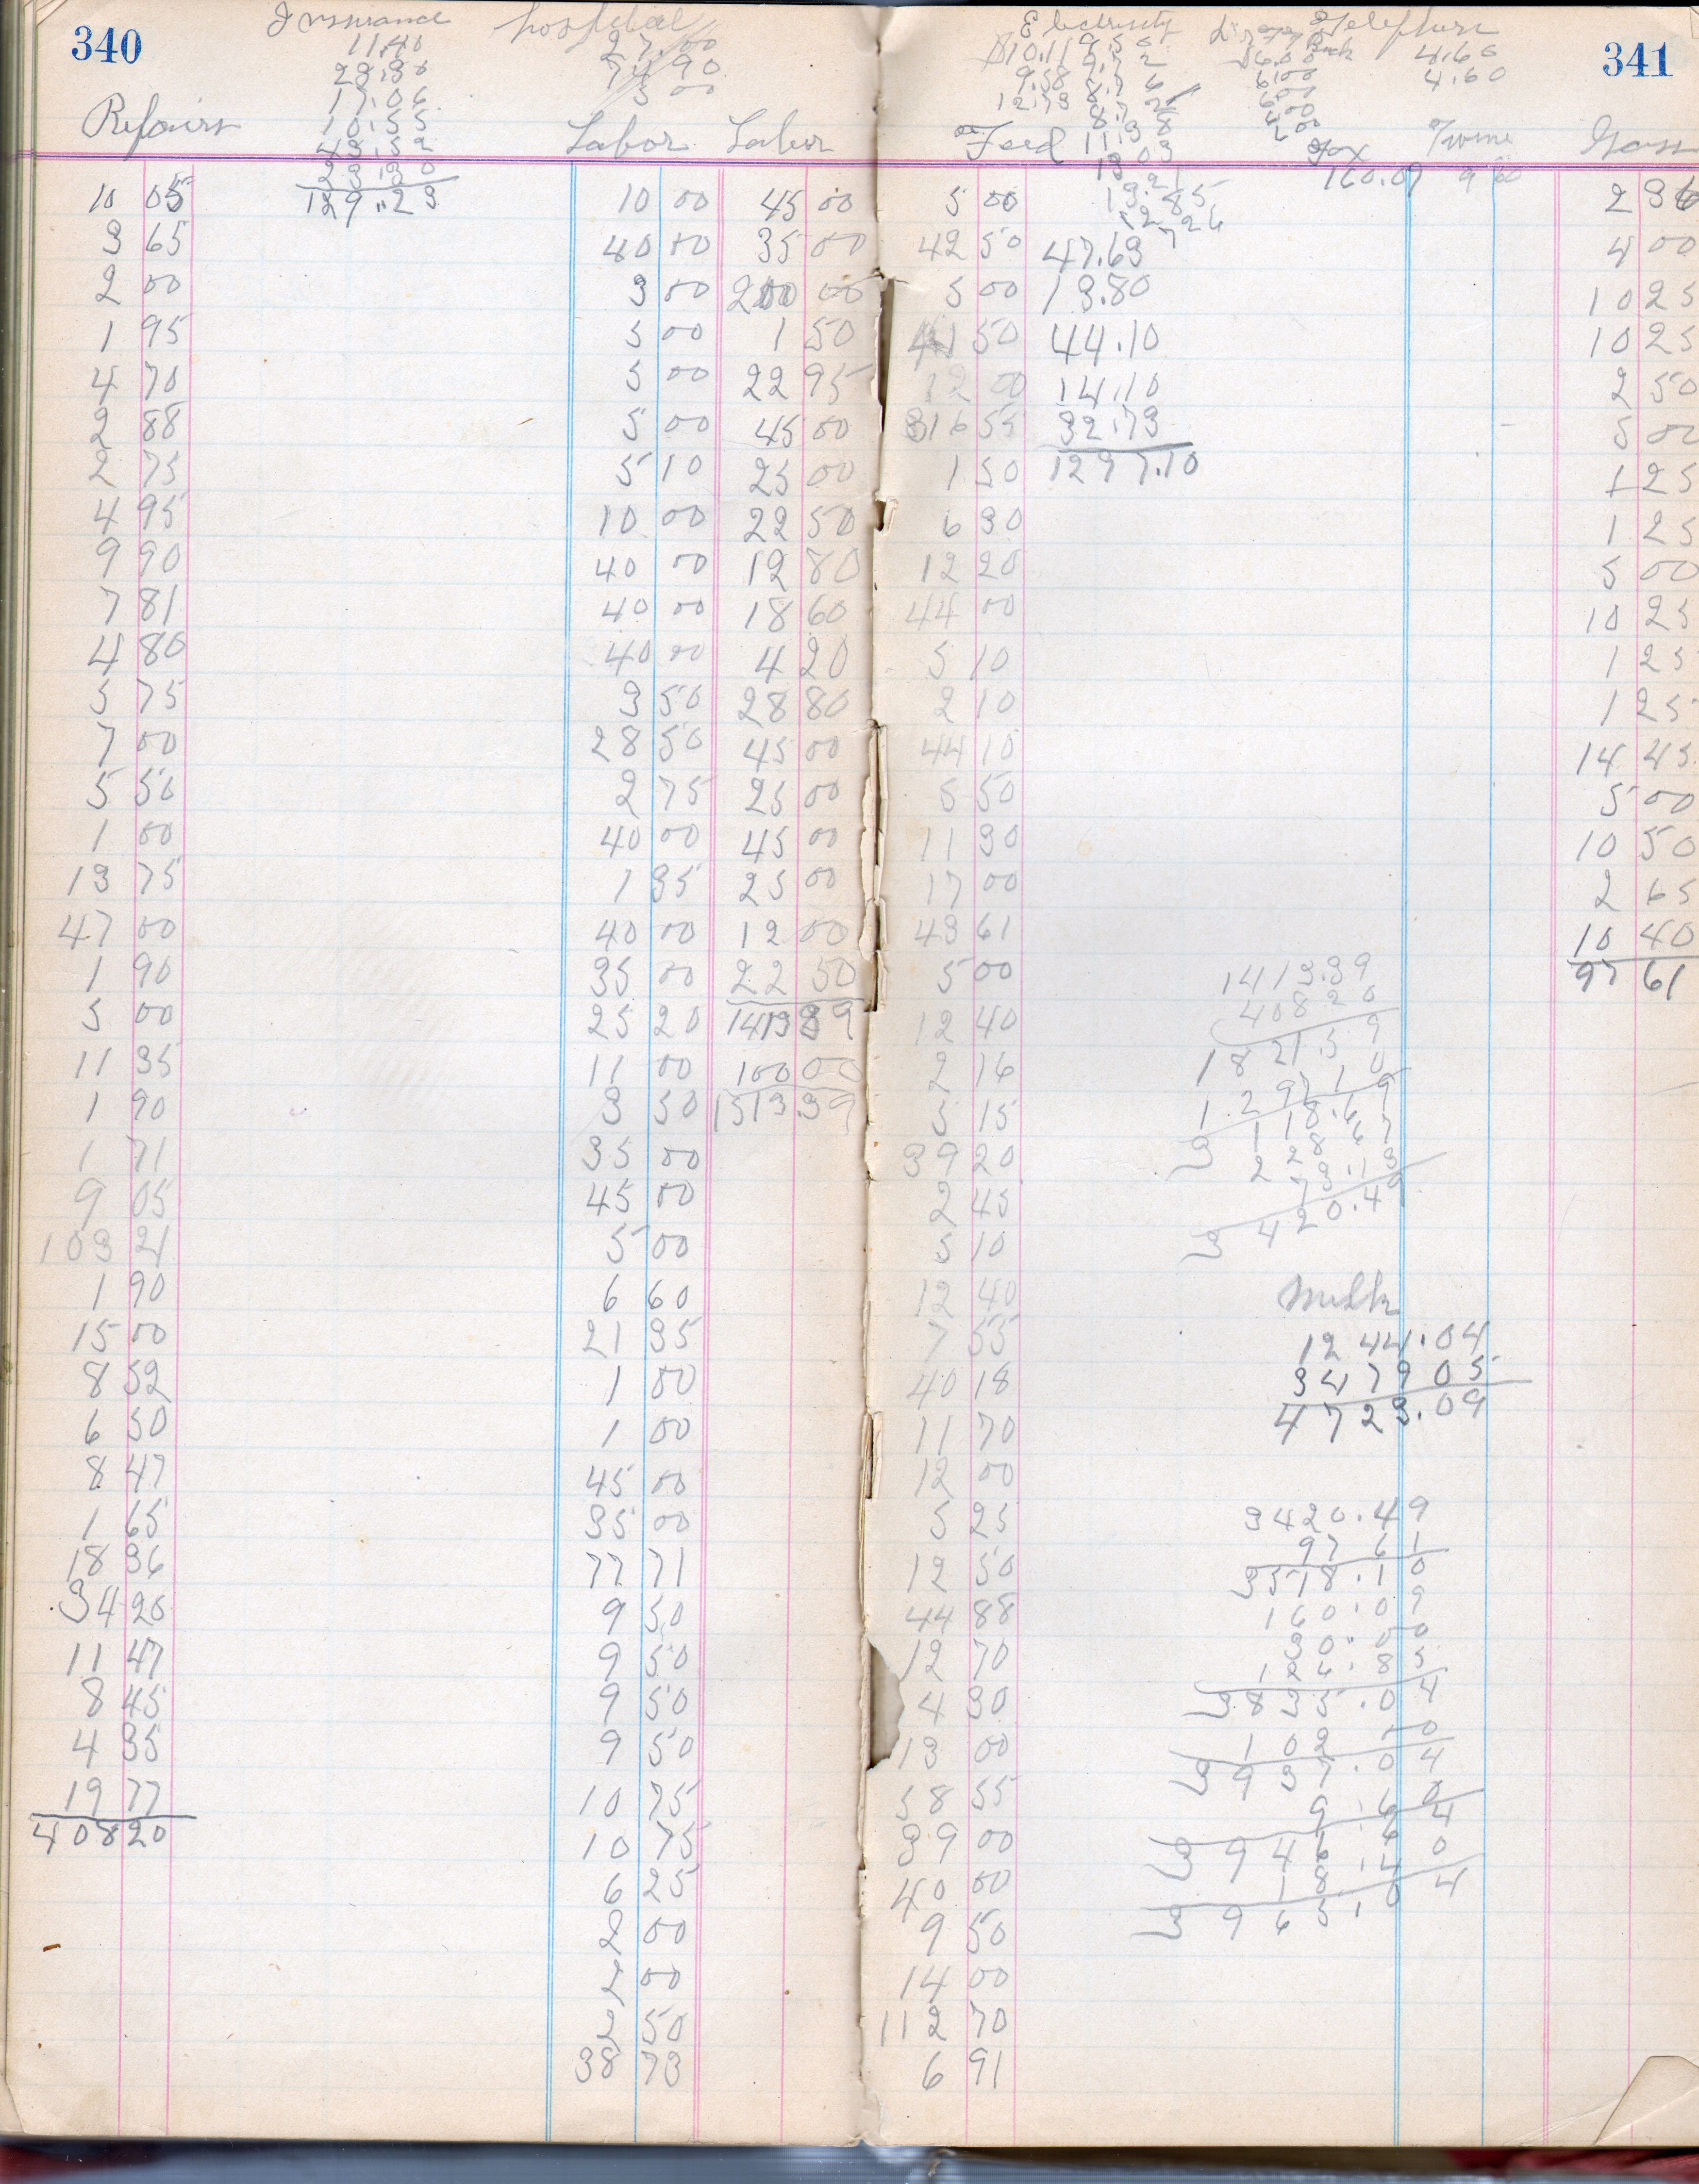 340
Insurance
11.40
17.06
10.55
129.23
hospital
27.00
5 00
Repairs
10 05
3 65
2 00
1 95
4 70
2 88
2 75
4 95
9 90
7 81
4 80
5 75
7 00
5 50
1 00
13 75
47 00
1 90
5 00
11 35
1 90
1 71
9 05
103 21
1 90
15 00
8 52
6 50
8 47
1 65
18 36
34 20
11 47
8 45
4 35
19 77
408 20
Labor
10 00
40 00
3 00
5 00
5 00
5 00
5 10
10 00
40 00
40 00
40 00
3 50
28 50
2 75
40 00
1 35
40 00
35 00
25 20
11 00
3 50
35 00
45 00
5 00
6 60
21 35
1 00
1 00
45 00
35 00
77 71
9 50
9 50
9 50
9 50
10 75
10 75
6 25
2 00
2 00
2 50
38 73
Labor
45 00
35 00
200 00
1 50
22 95
45 00
25 00
22 50
12 80
18 60
4 20
28 80
45 00
25 00
45 00
25 00
12 00
22 50
1413 39
100 00
1513.39
341
Electricity
$10.11
9.58
12.73
11.38
13.03
13.21
Telephone
4.60
4.60
Feed
5 00
42 50
5 00
41 50
12 00
316 55
1 50
6 30
12 20
44 00
5 10
2 10
44 10
5 50
11 30
17 00
43 61
5 00
12 40
2 16
5 15
39 20
2 45
5 10
12 40
7 55
40 18
11 70
12 00
5 25
12 50
44 88
12 70
4 30
13 00
58 55
39 00
40 00
9 50
14 00
112 70
6 91
47.63
13.80
44.10
14.10
32.73
1297.10
Tax
160.09
Twine
9 60
1413.39
408 20
1821.59
1297 10
3118.69
228 67
73.13
3420.49
Milk
1244.04
3479 05
4723.09
3420.49
97 61
3518.10
160.09
30.00
126.85
3835.04
102 00
3937.04
9.60
3946.64
18.40
3965.04
Gass
2 36
4 00
10 25
10 25
2 50
5 00
1 25
1 25
5 00
10 25
1 25
1 25
14 45
5 00
10 50
2 65
10 40
97 61